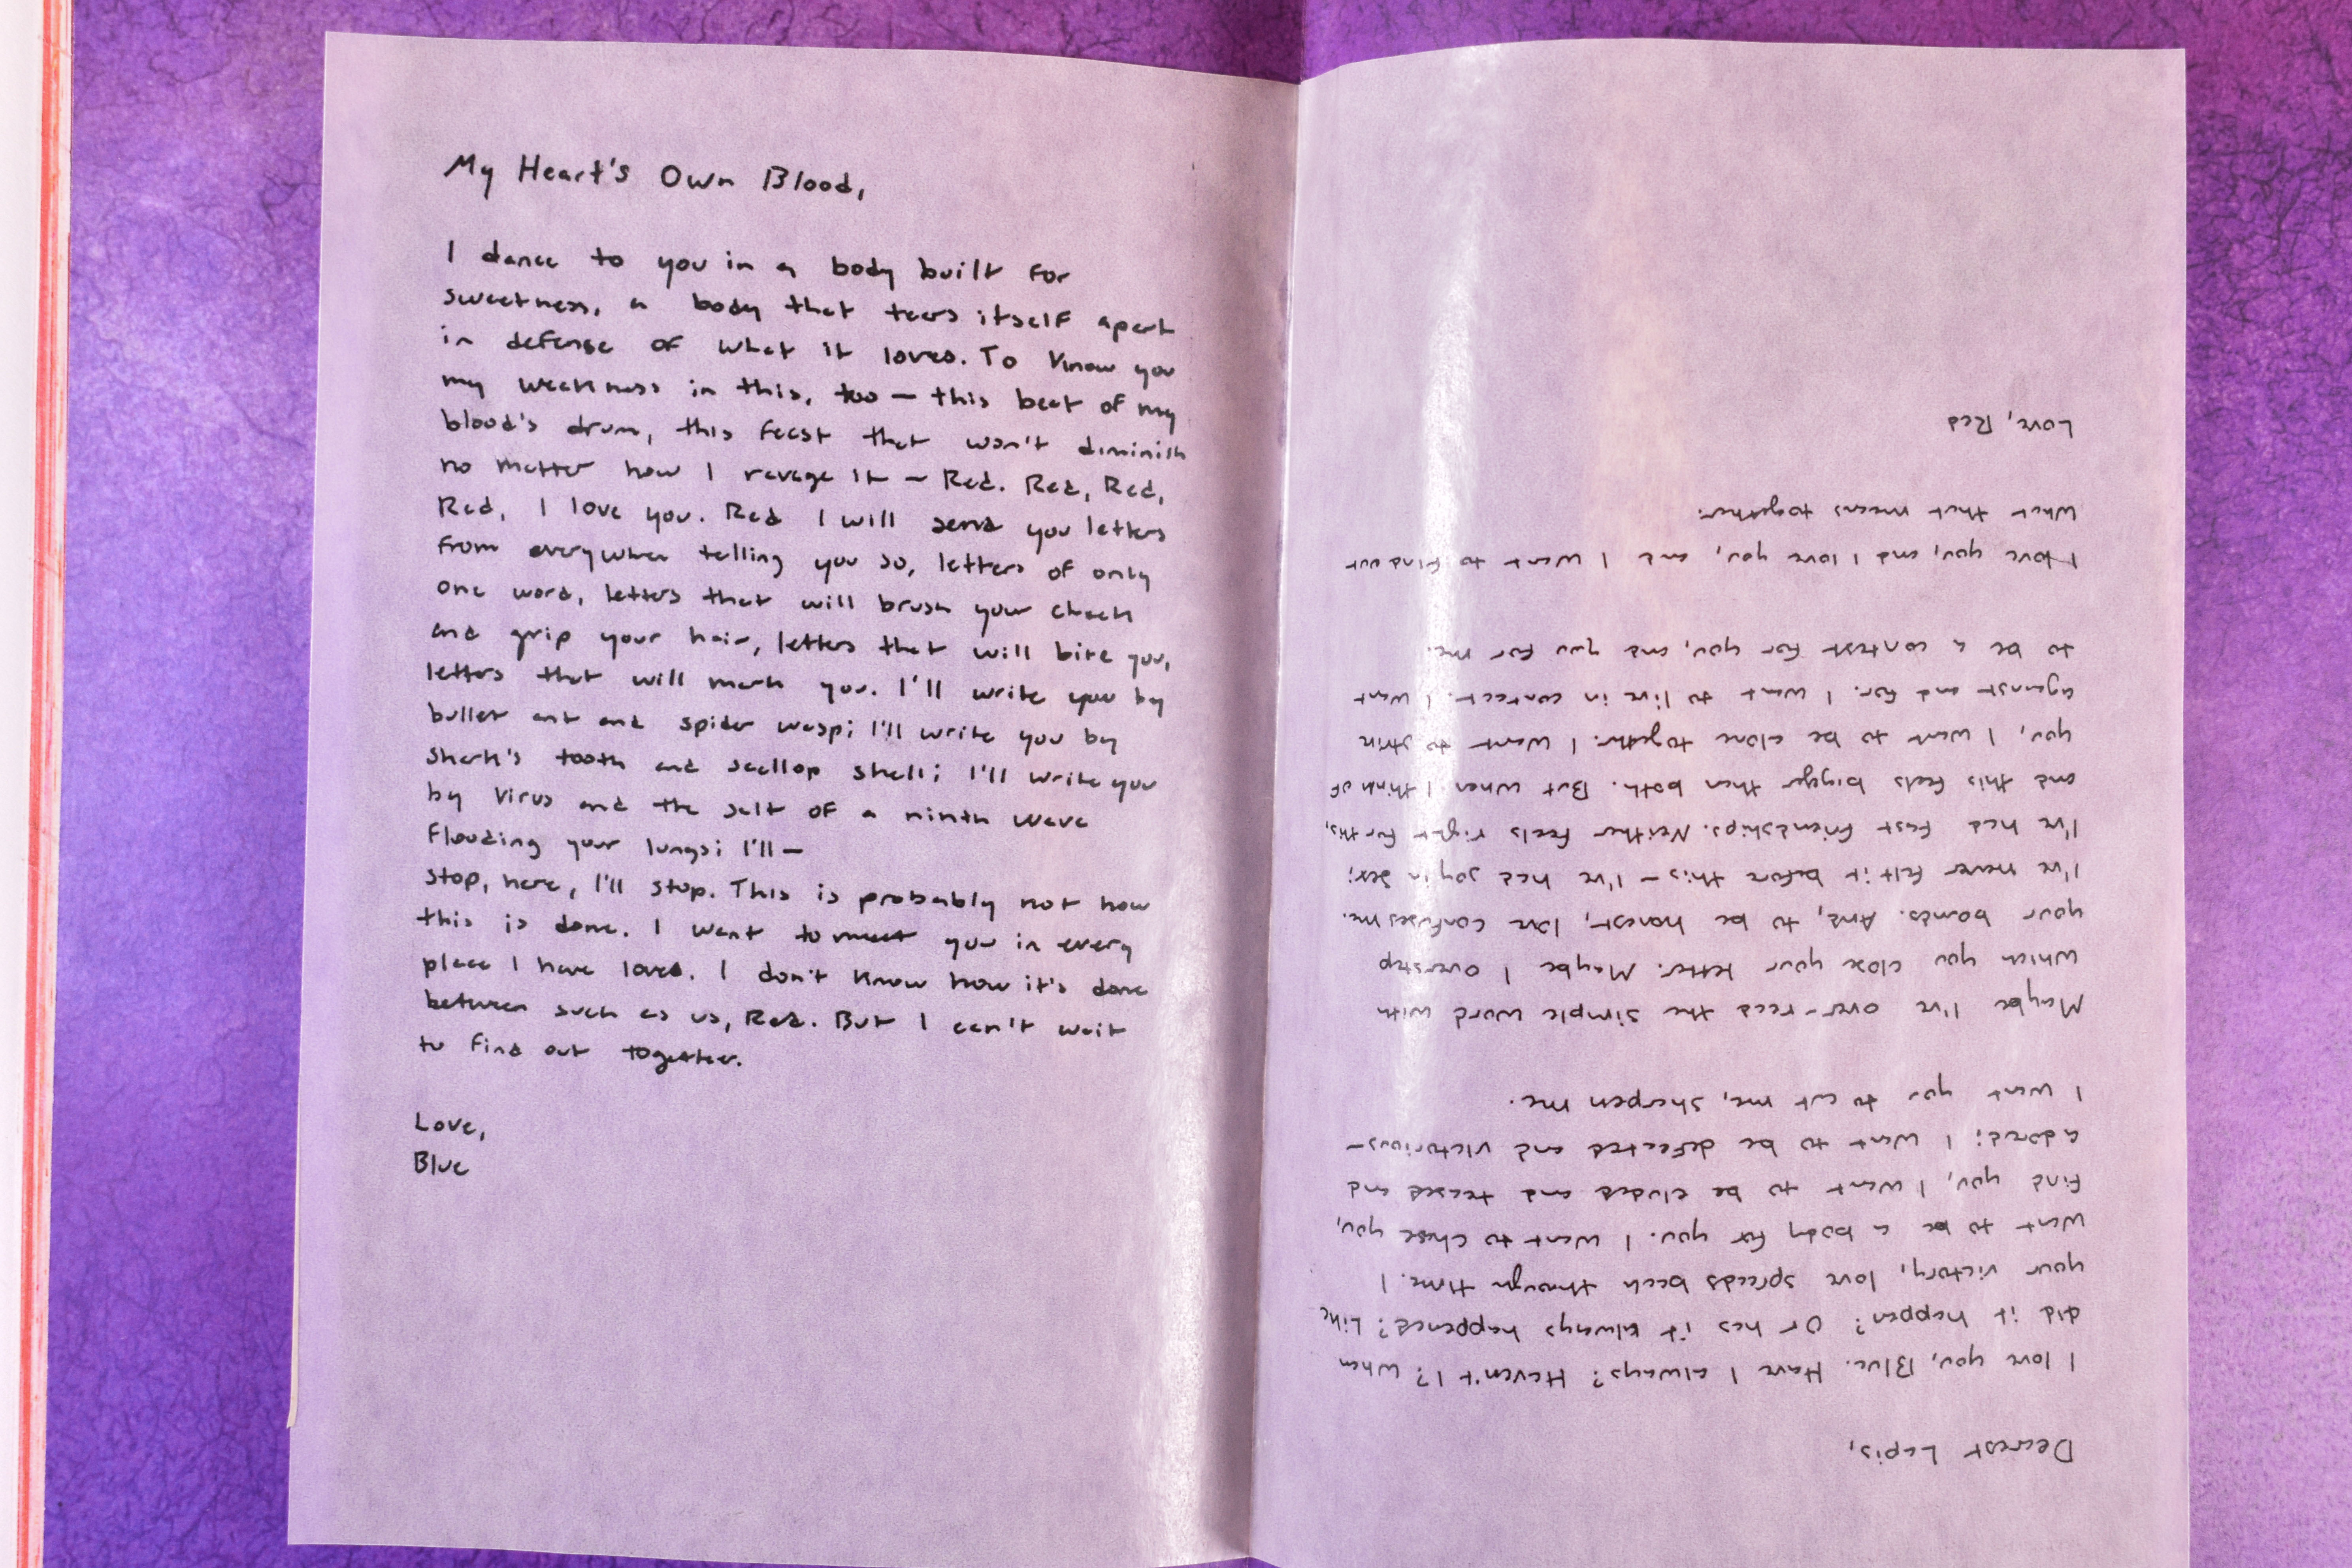 My Heart's Own Blood,
I dance to you in a body built for
sweetness, a body that tears itself apart
in defense of what it loves. To know you
my weakness in this, too — this beat of my
blood's drum, this feast that won't diminish
no matter how I ravage it — Red. Red, Red,
Red, I love you. Red I will send you letters
from everywhere telling you so, letters of only
one word, letters that will brush your cheek
and grip your hair, letters that will bite you,
letters that will mark you. I'll write you by
bullet ant and spider wasp; I'll write you by
shark's tooth and scallop shell; I'll write you
by virus and the salt of a ninth wave
flooding your lungs; I'll —
stop, here, I'll stop. This is probably not how
this is done. I want to meet you in every
place I have loved. I don't know how it's done
between such as us, Red. But I can't wait
to find out together.
Love,
Blue
Dearest Lapis,
I love you, Blue. Have I always? Haven't I? When
did it happen? Or has it always happened? Like
your victory, love spreads back through time. I
want to be a body for you. I want to chase you,
find you, I want to be eluded and teased and
adored; I want to be defeated and victorious—
I want you to cut me, sharpen me.
Maybe I've over-read the simple word with
which you close your letter. Maybe I overstep
your bounds. And, to be honest, love confuses me.
I've never felt it before this — I've had joy in sex;
I've had fast friendships. Neither feels right for this,
and this feels bigger than both. But when I think of
you, I want to be alone together. I want to strive
against and for. I want to live in contact. I want
to be a context for you, and you for me.
I love you, and I love you, and I want to find out
what that means together.
Love, Red